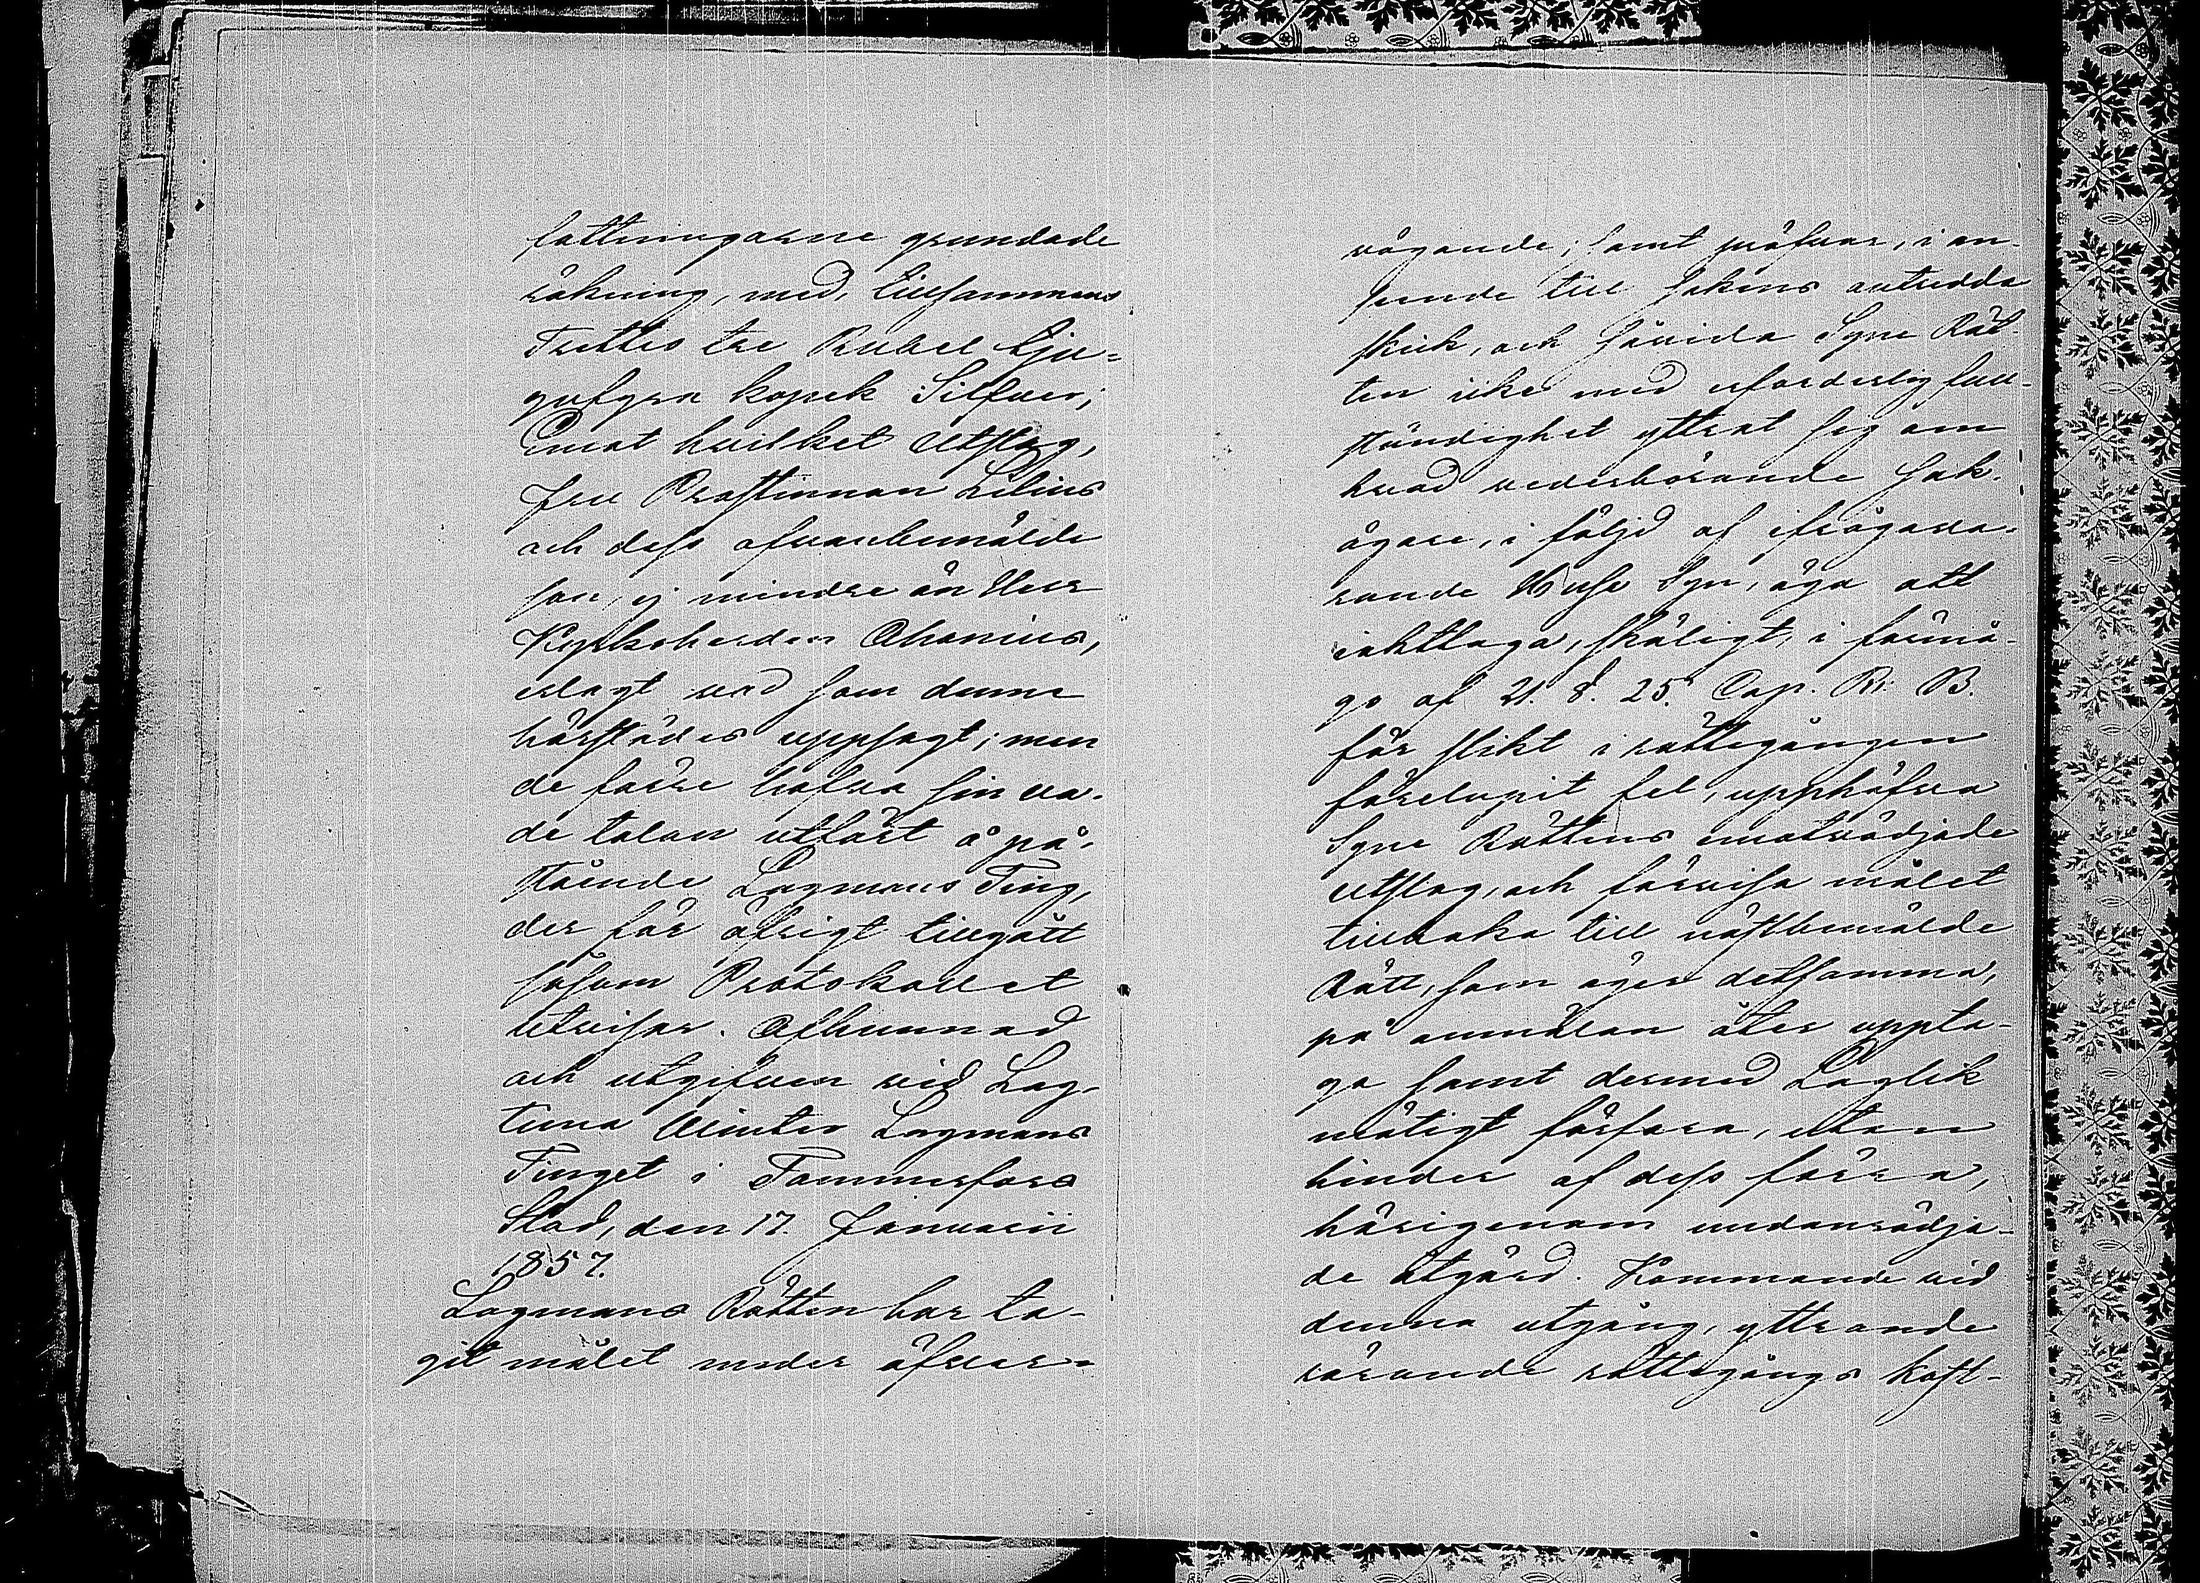 fattningarne grundade
räkning, med, tillsammans
Trettio tre Rubel tju-
gufyra kopek Silfver;
Emot hvilket Utslag,
Fru Prostinnan Lilius
och dess ofvanbemälde
son, ej mindre än Herr
Kyrkoherden Chonius,
erlagt vad som denne
härstädes uppsagt; men
de förre hafva sin va-
de talan utfört å på-
stående Lagmans Ting,
der för öfrigt tillgått
såsom Protokollet
utvisar. Afkunnad
och utgifven vid Lag-
tima Vinter Lagmans
Tinget i Tammerfors
Stad, den 17. Januarii
1857.
Lagmans Rätten har ta-
git målet under öfver-
vägande; samt pröfvar, i an-
seende till sakens outredda
skick, och såvida Syne Rät-
ten icke med erforderlig full-
ständighet yttrat sig om
hvad vederbörande sak-
ägare, i följd af ifrågava-
rande Huse Syn, äga att
iakttaga, skäligt, i förmå-
go af 21. §. 25. Cap. R. B.
för slikt i rättegången
förelupit fel, upphäfva
Syne Rättens omotvädjade
Utslag, och förvisa målet
tillbaka till nästbemälde
Rätt, som äger detsamma,
på anmälan åter uppta-
ga samt dermed Laglik
mätigt förfara, utan
hinder af dess förra,
härigenom undanrödja-
de åtgärd. Kommande vid
denna utgång, yttrande
rörande rättegångs kost-